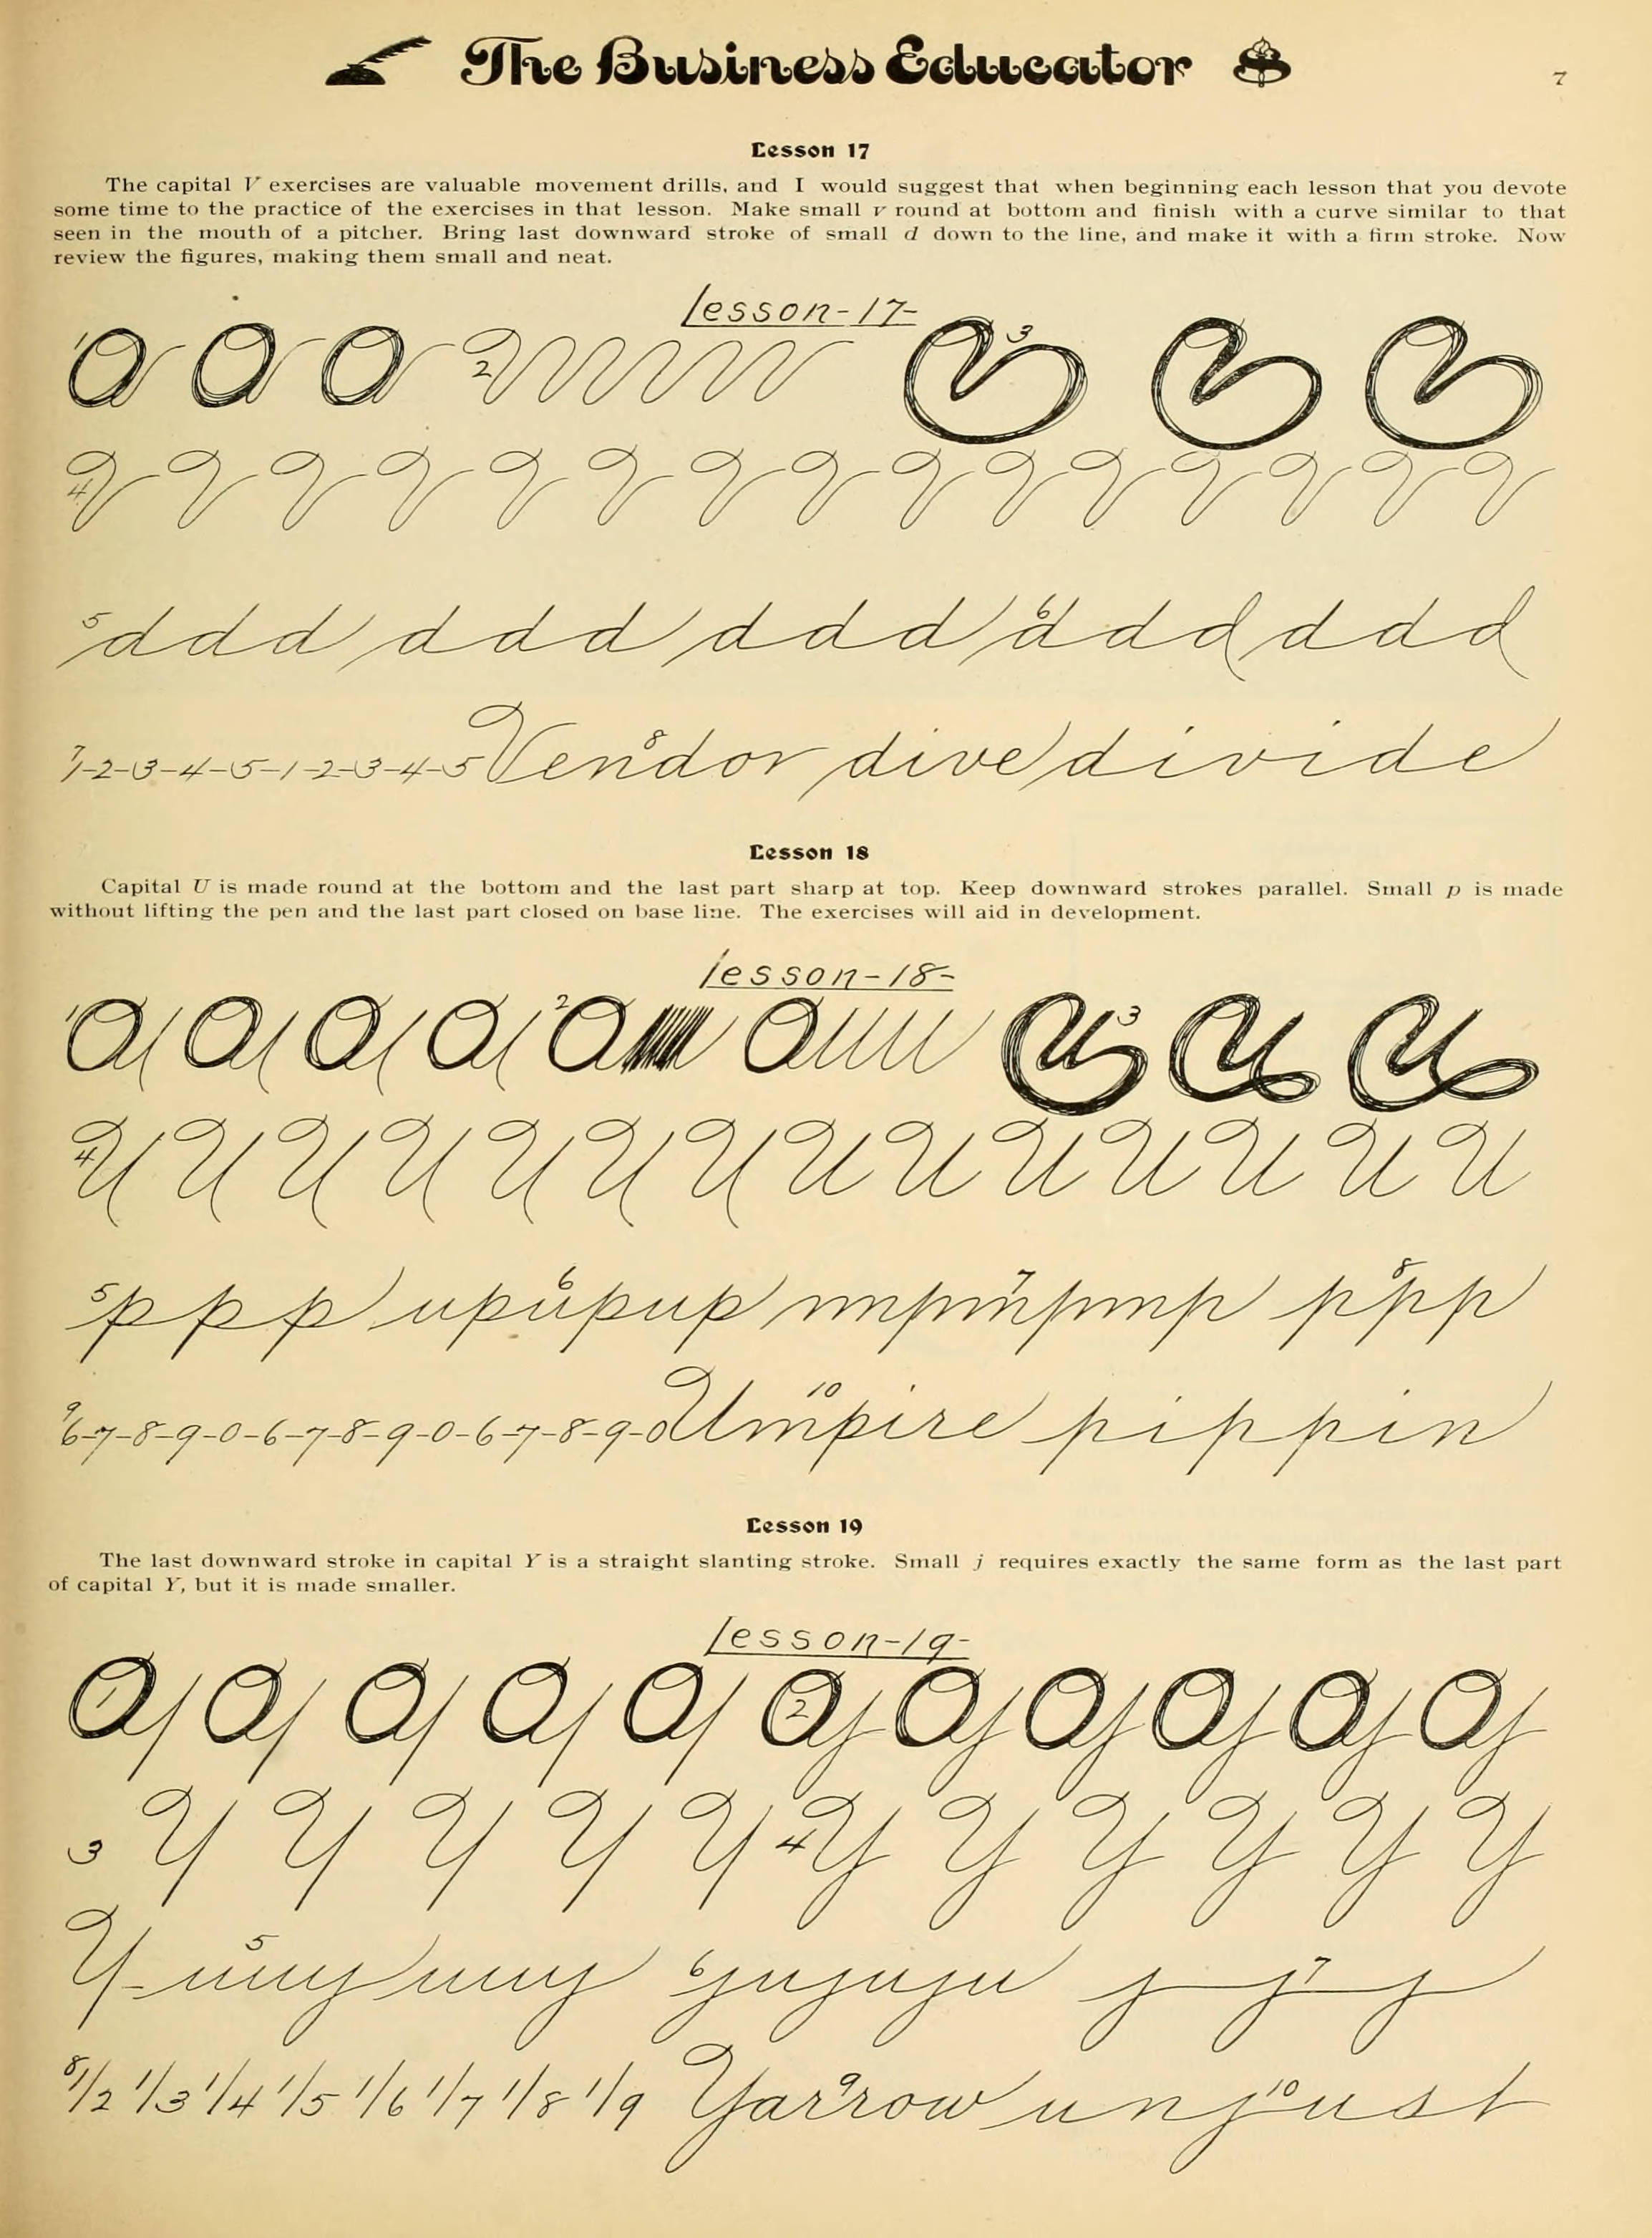 The Business Educator
7
Lesson 17
The capital V exercises are valuable movement drills, and I would suggest that when beginning each lesson that you devote
some time to the practice of the exercises in that lesson. Make small v round at bottom and finish with a curve similar to that
seen in the mouth of a pitcher. Bring last downward stroke of small d down to the line, and make it with a firm stroke. Now
review the figures, making them small and neat.
lesson-17-
1 2 3
4 V V V V V V V V V V V V V V V
5 d d d d d d d d d 6 d d d d d d
7 1-2-3-4-5-1-2-3-4-5 8 Vendor dive divide
Lesson 18
Capital U is made round at the bottom and the last part sharp at top. Keep downward strokes parallel. Small p is made
without lifting the pen and the last part closed on base line. The exercises will aid in development.
lesson-18-
1 2 3
4 U U U U U U U U U U U U U U
5 p p p 6 upupup 7 mpmpmp 8 p p p
9 6-7-8-9-0-6-7-8-9-0-6-7-8-9-0 10 Umpire pippin
Lesson 19
The last downward stroke in capital Y is a straight slanting stroke. Small j requires exactly the same form as the last part
of capital Y, but it is made smaller.
lesson-19-
1 2
3 Y Y Y Y Y 4 Y Y Y Y Y Y
Y- 5 uuy uuy 6 jujuju 7 j j j
8 1/2 1/3 1/4 1/5 1/6 1/7 1/8 1/9 9 Yarrow 10 unjust